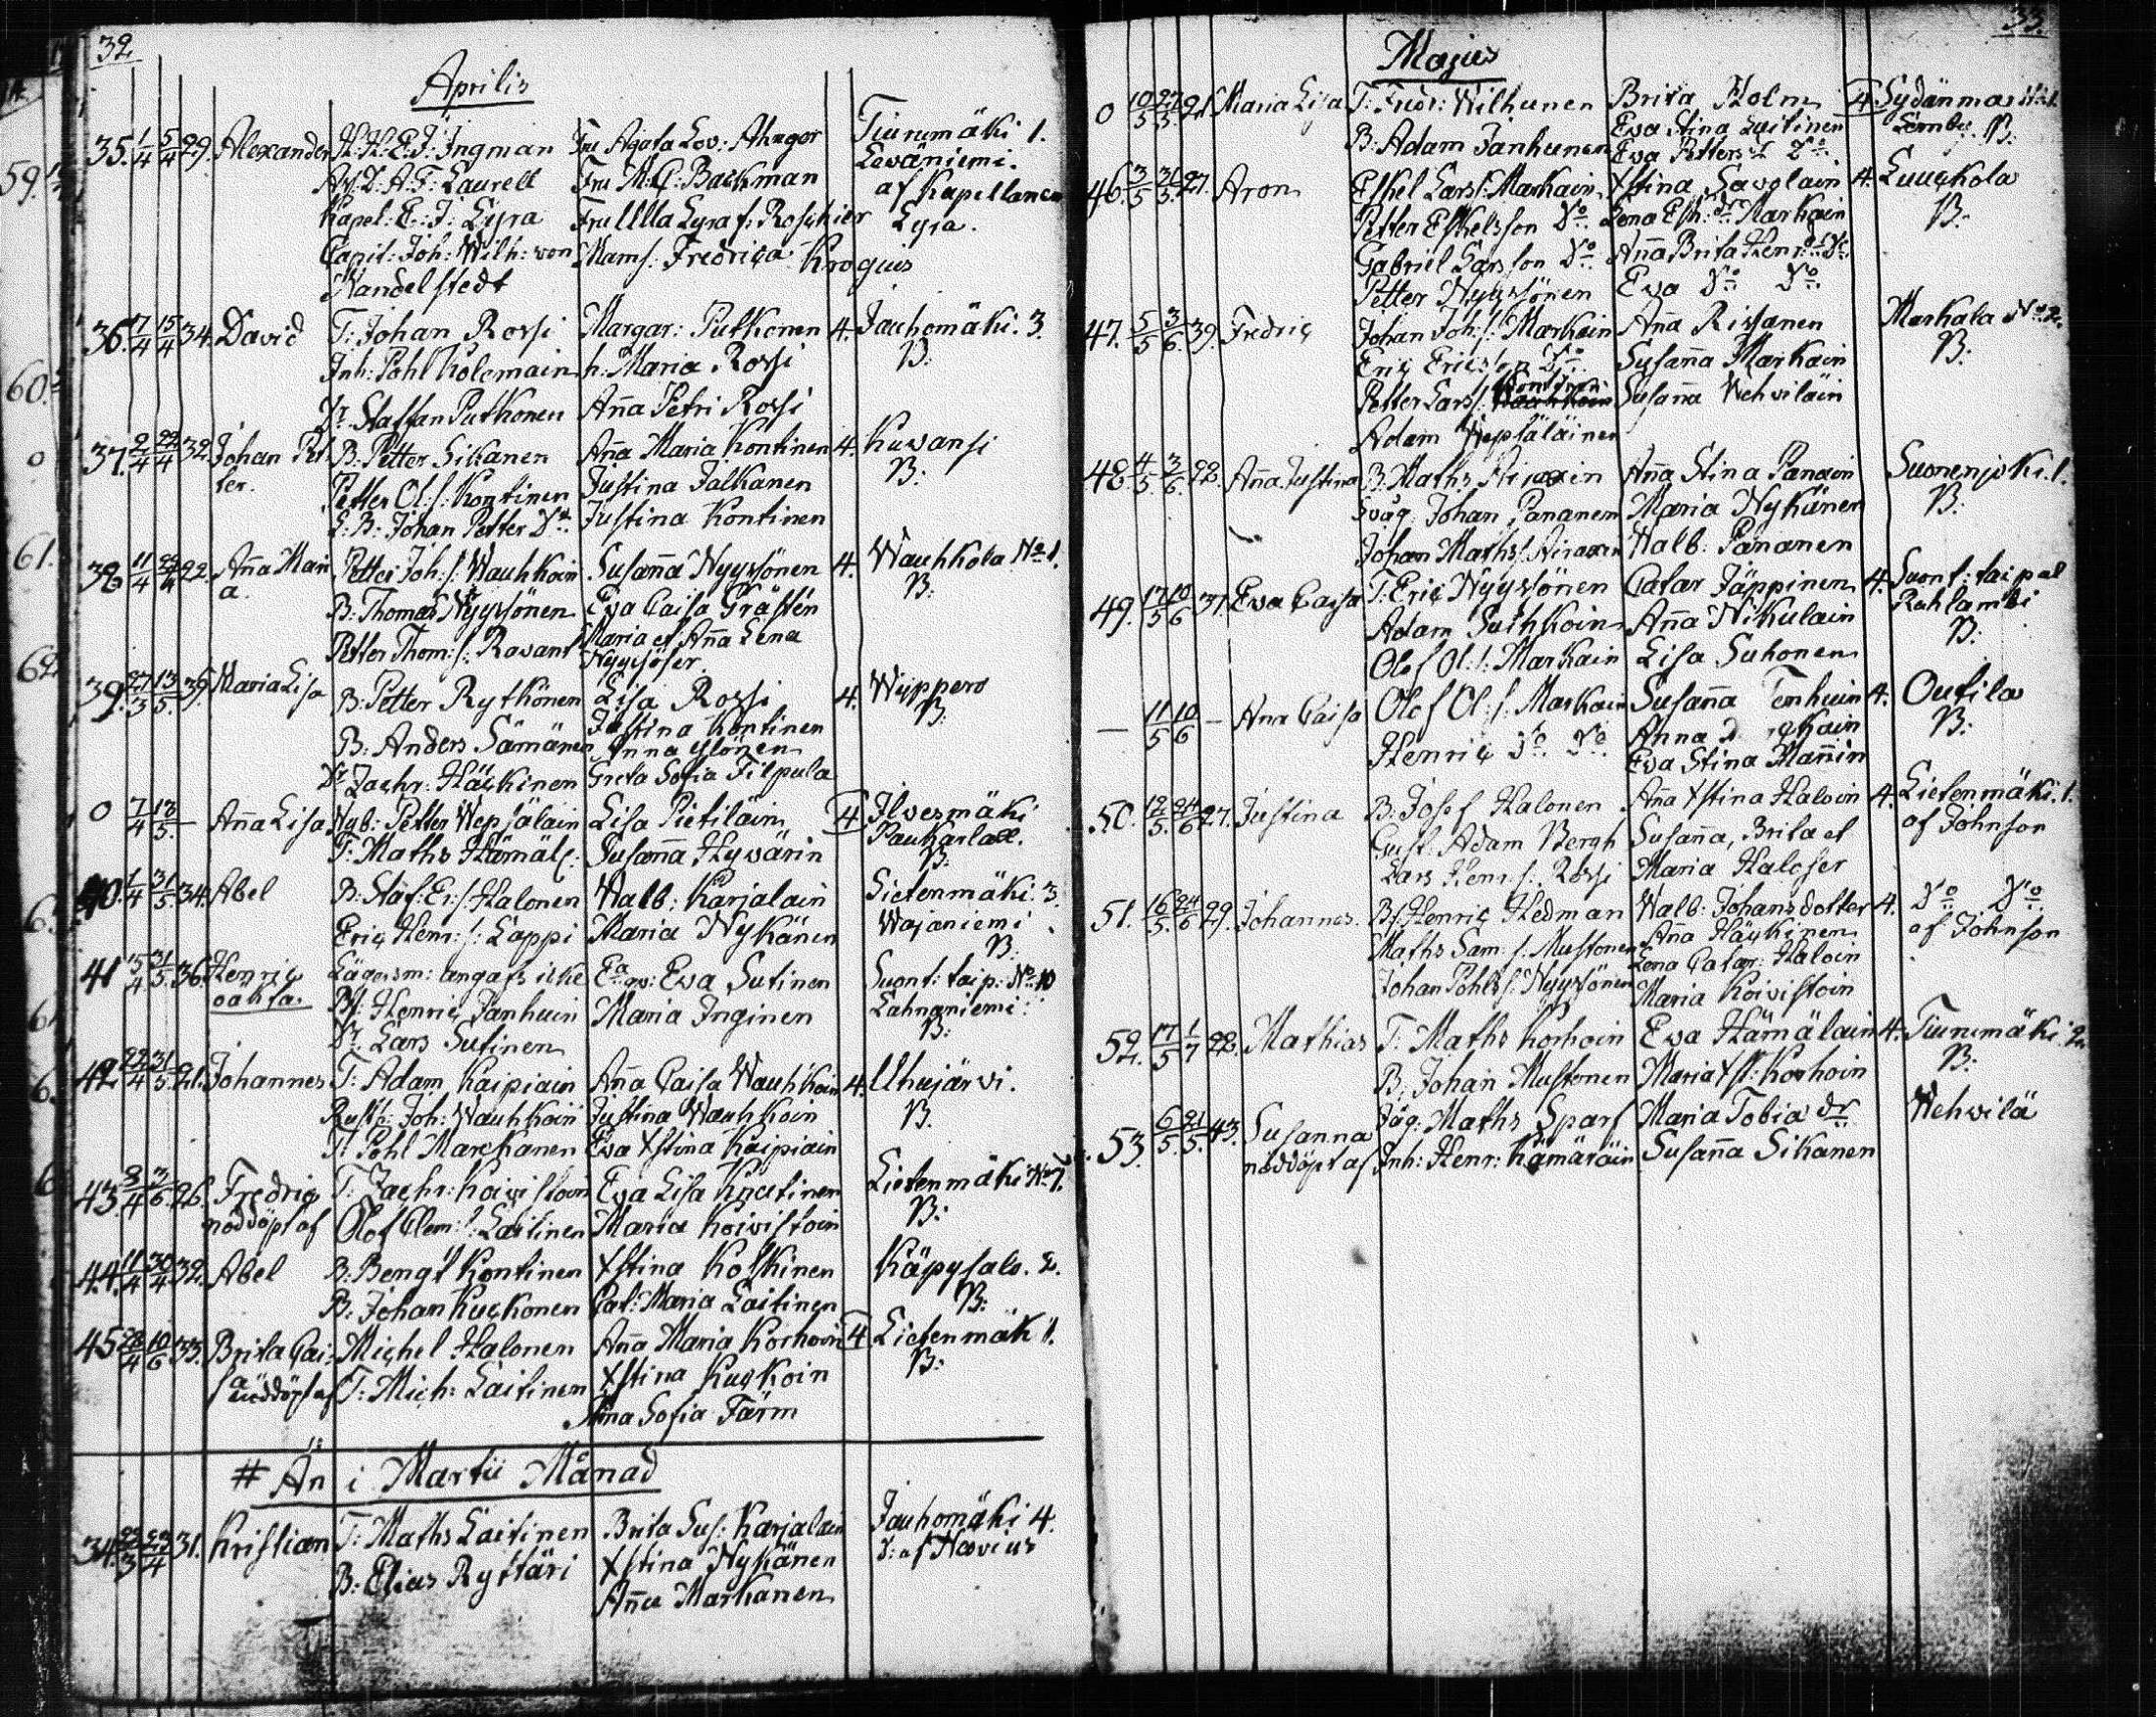 32
Aprilis
35. 1/4 5/4 29. Alexander H. H. E: J: Ingman Fru Agata Lov: Ahnger Tiurumäki 1.
A: J. A: F: Laurell Fru M. C: Backman Lewäniemi.
Kapel: E: J: Lyra Fru Ulla Lyra f: Roschier af Kapellanen
Capit: Joh: Wilh: von Mams: Fredrica Kroguis Lyra.
Nandelstedt
36. 7/4 15/4 34. David T: Johan Rossi Margar: Putkonen 4. Jauhomäki. 3.
Inh: Påhl Kolemain h: Maria Rossi B:
Dr. Staffan Putkonen Aña Petri Rossi
37. 2/4 22/4 32. Johan Pet B: Petter Sikanen Aña Maria Kontinen 4. Kuwansi
ter. Petter Ol: s: Kontinen Justina Jalkanen B:
S: B: Johan Petter Do Justina Kontinen
38. 11/4 22. Aña Mari Petter Joh: s: Wauhkoin Susaña Nyyssönen 4. Wauhkola No 1.
a. B: Thomas Nyyssönen Ewa Caisa Grästen B:
Petter Thom: s: Rawant Maria et Aña Lena
Nyyssöser.
39. 27/3 13/5 39. Maria Lisa B: Petter Rytkönen Lisa Rossi 4. Wippero
B: Anders Sämänen Justina Kontinen B:
Anna Ylönen
Dr Zachr: Häckinen Greta Sofia Filpula
0 7/4 13/5 Aña Lisa Nyb: Petter Wepsäläin Lisa Pietiläin 4 Ilwesmäki
T: Maths Hämäl: Susaña Hywärin Paukarlax.
B:
40. 1/4 31/5 34. Abel B: Staf: Er: s: Halonen Walb: Karjalain Lietenmäki: 3.
Eric Henr: s: Lappi Maria Nykänen Wajaniemi
B:
41 15/4 31/5 36. Henric Lägersm: angafs icke Ea qv: Ewa Sutinen Suont: taip: No 10
oäkta. Bs: Henric Janhuin Maria Inginen Lahnaniemi:
Dr. Lars Sutinen B:
42. 22/4 31/5 21. Johannes T: Adam Kaipiain Aña Caisa Wauhkoin 4. Uhujärwi.
Rust: Joh: Wauhkoin Justina Wauhkoin B.
T: Pohl Marckanen Ewa Xstina Kaipiain
43. 3/4 3/6 26. Fredric T: Zachr: Koiwistoin Ewa Lisa Knutinen Lietenmäki No 7.
nöddöpt af Olof Clem: s: Laitinen Maria Koiwistoin B:
44. 11/4 30/4 32. Abel B: Bengt Kontinen Xstina Koskinen Käpysalo. 2.
B: Johan Kuckonen Cat: Maria Laitinen B:
45 28/4 10/6 33. Brita Cai= Michel Halonen Aña Maria Korhoin 4 Lietenmäk 1.
sa nöddöpt af T: Mich: Laitinen Xstina Kuckoin B:
Aña Sofia Färm
# Än i Martii Månad
34. 22/3 23/4 31. Kristian T: Maths Laitinen Brita Sus: Karjalain Jauhomäki 4.
B: Elias Ryttäri Xstina Nykänen D: af Hævius
Aña Markanen
33.
Majus
0 10/5 27/5 21. Maria Lisa T: Fredr: Wilhunen Brita Holm 4. Sydänmaa
B: Adam Janhunen Ewa Stina Laitinen B:
Ewa Petters dr Do
46. 3/5 31/5 27. Aron Eskel Lars s: Markain Xstina Sawolain 4. Luuckola
Petter Eskelsson Do Lena Esk: dr Markain B:
Gabriel Larsson Do Aña Brita Henr: dr Do
Petter Nyyssönen Ewa Do Do
47. 5/5 3/6 39. Fredric Johan Joh: s: Markain Aña Rissanen Markala No 2.
Eric Ericsson Do Susaña Markain B:
Petter Lars s: Susaña Wehwiläin
Adam Wepsäläinen
48. 4/5 3/6 22. Aña Justina B: Maths Airaxin Aña Stina Panain Suonenjoki. 1.
Swåg: Johan Pananen Maria Nykänen B:
Johan Maths s: Airaxin Walb: Pananen
49. 17/5 10/6 37. Ewa Caisa T: Eric Nyyssönen Catar Jäppinen 4. Suont: taipal
Adam Suihkoin Aña Nikulain Rahlambi
Olof Ol: s: Markain Lisa Suhonen B:
— 11/5 10/6 — Ana Caisa Olof Ol: s: Markain Susaña Tenhuin 4. Outila
Henric Do Do Anna B:
Ewa Stina Mañin
50. 12/5 24/6 27. Justina B: Josef Halonen Aña Xstina Haloin 4. Lietenmäki. 1.
Gust: Adam Bergh Susaña, Brita et af Johnson
Lars Henr: s: Rossi Maria Haloser
51. 16/5 24/6 29. Johannes. Bs: Henric Hedman Walb: Johansdotter 4. Do Do
Maths Sam: s: Mustonen Aña Häckinen af Johnson
Lena Catar: Haloin
Johan Pohls s: Nyyssönen Maria Koiwistoin
52. 17/5 1/7 22. Mathias T: Maths Korhoin Ewa Hämäläin 4. Tiurumäki. 2.
B: Johan Mustonen Maria Xst: Korhoin B:
53. 6/5 21/5 43. Susanna Jäg: Maths Sparf Maria Tobia dr Wehwilä
nöddöpt af Inh: Henr: Kämäräin Susaña Sikanen